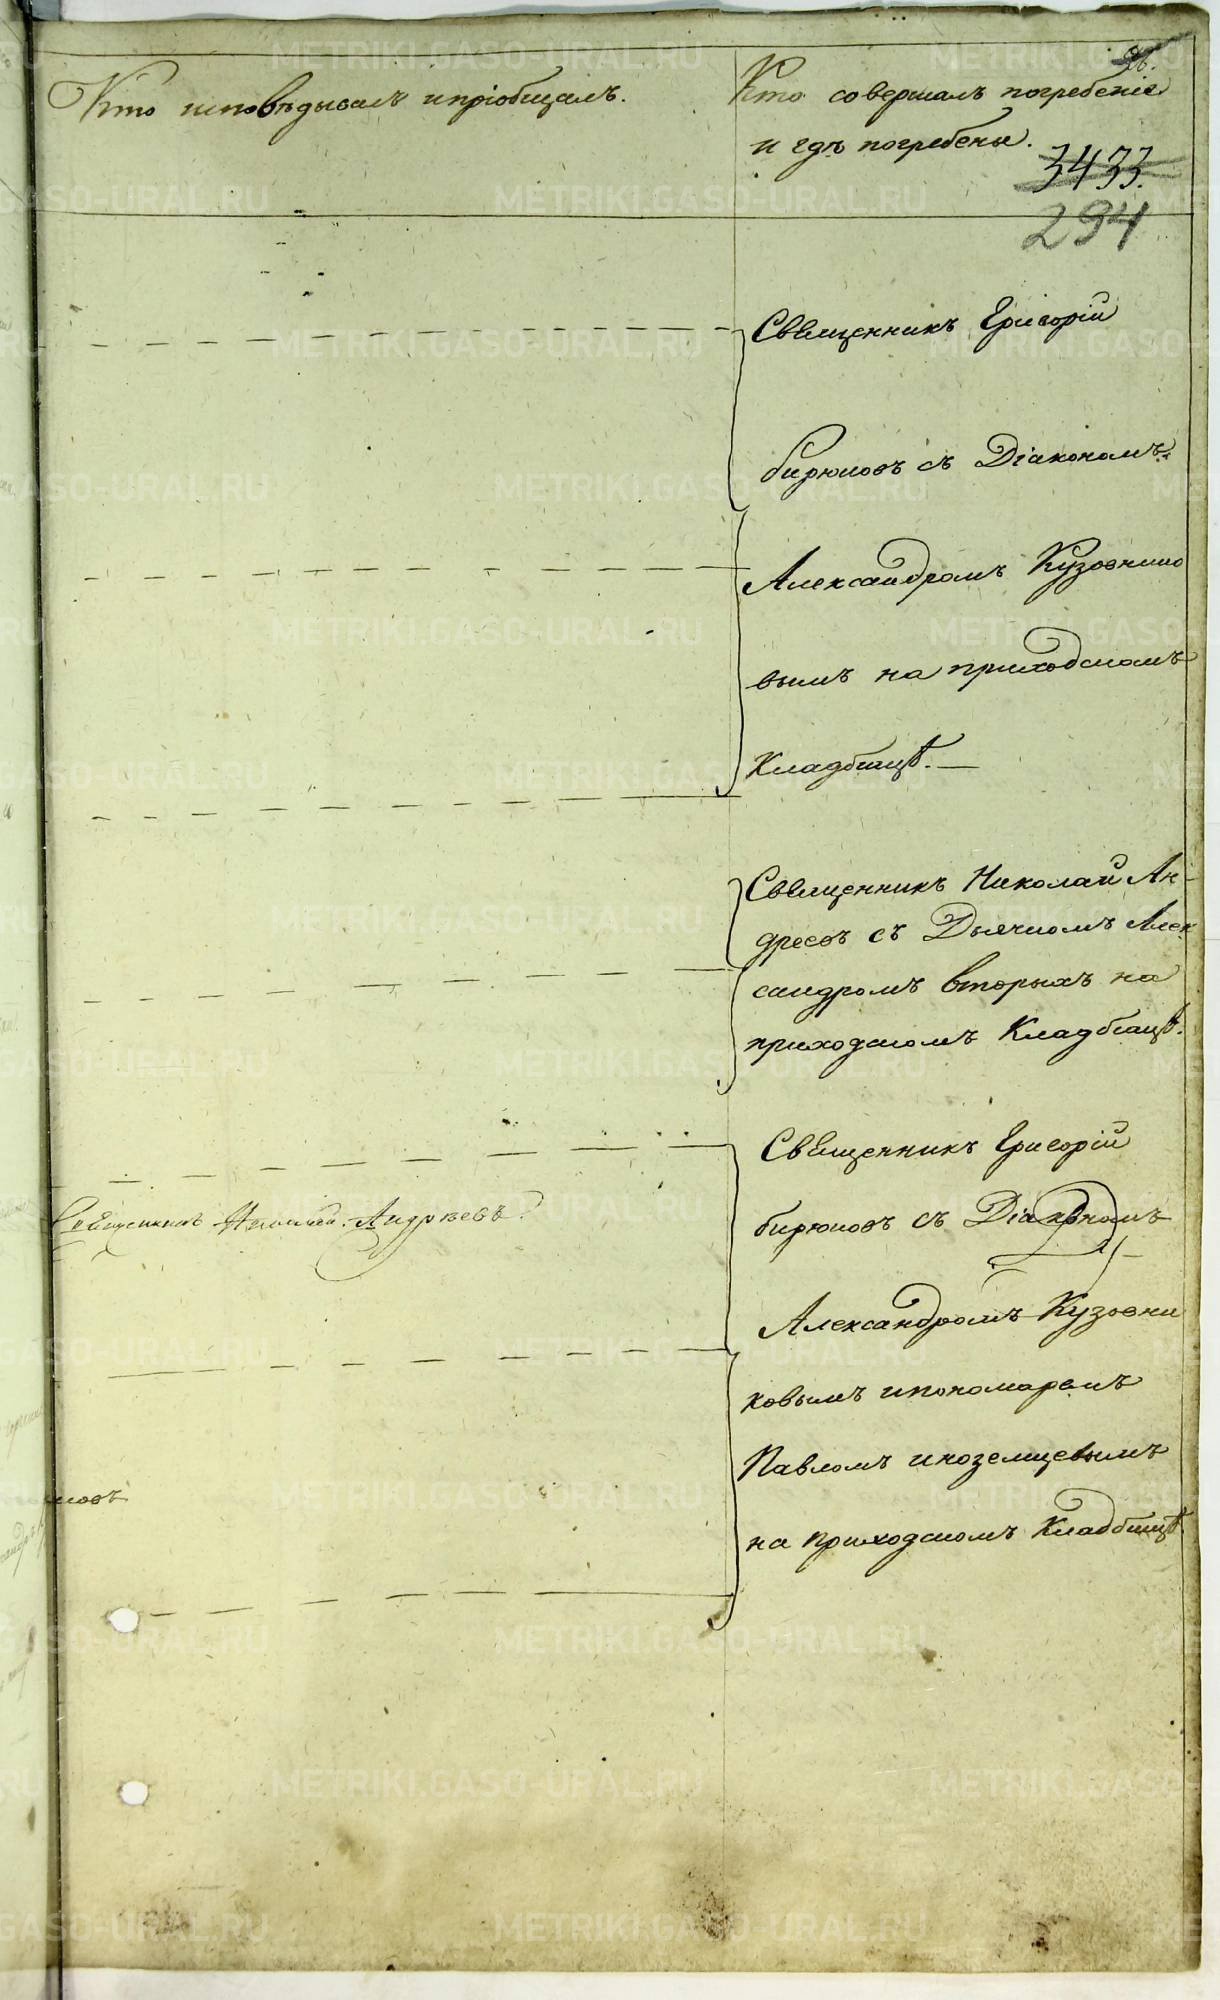 26.
Кто исповѣдывалъ и пріобщалъ.
Кто совершалъ погребеніе
и гдѣ погребены.
3433.
294
Священникъ Григорій
Бирюковъ съ Діакономъ
Александромъ Кузовнико
вымъ на приходскомъ
Кладбищѣ.
Священникъ Николай Ан-
дреевъ съ Дьячкомъ Алек
сандромъ Вторыхъ на
приходскомъ Кладбищѣ.
Священникъ Григорій
Бирюковъ съ Діакономъ
Священникъ Николай Андреевъ.
Александромъ Кузовни
ковымъ и пономаремъ
Павломъ Иноземцевымъ
на приходскомъ Кладбищѣ
METRIKI.GASO-URAL.RU